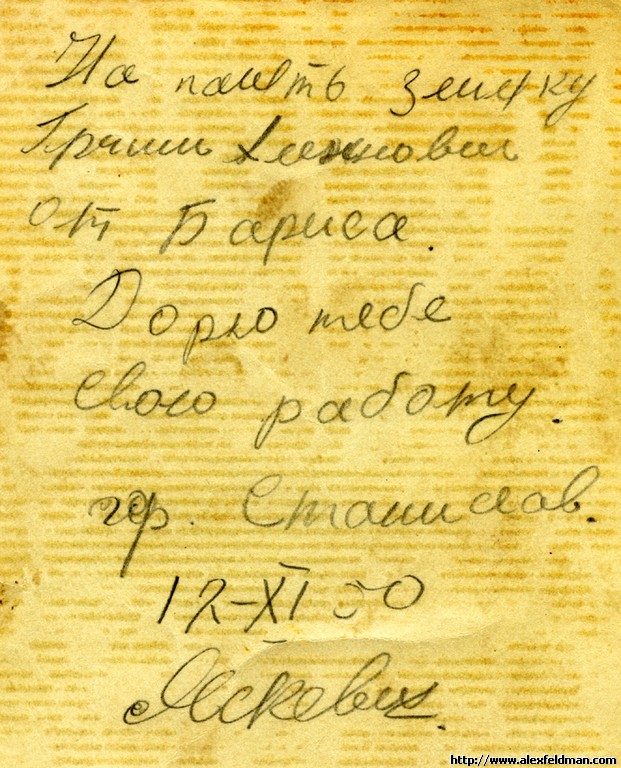 На память земляку
Гриши
от Бариса.
Дорю тебе
свою работу.
гр. Станислав.
12-XI 50
Яскевич.
http://www.alexfeldman.com